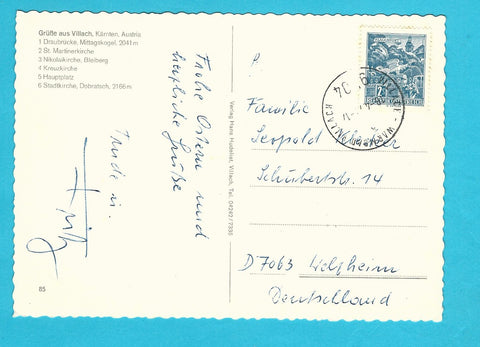 Grüße aus Villach, Kärnten, Austria
1 Draubrücke, Mittagskogel, 2041 m
2 St. Martinerkirche
3 Nikolaikirche, Bleiberg
4 Kreuzkirche
5 Hauptplatz
6 Stadtkirche, Dobratsch, 2166 m
Frohe Ostern und
herzliche Grüße
Trude u.
Fritz
85
Verlag Hans Hudelist, Villach, Tel. 04242/7336
Familie
Leopold
Schubertstr. 14
D 7063 Welzheim
Deutschland